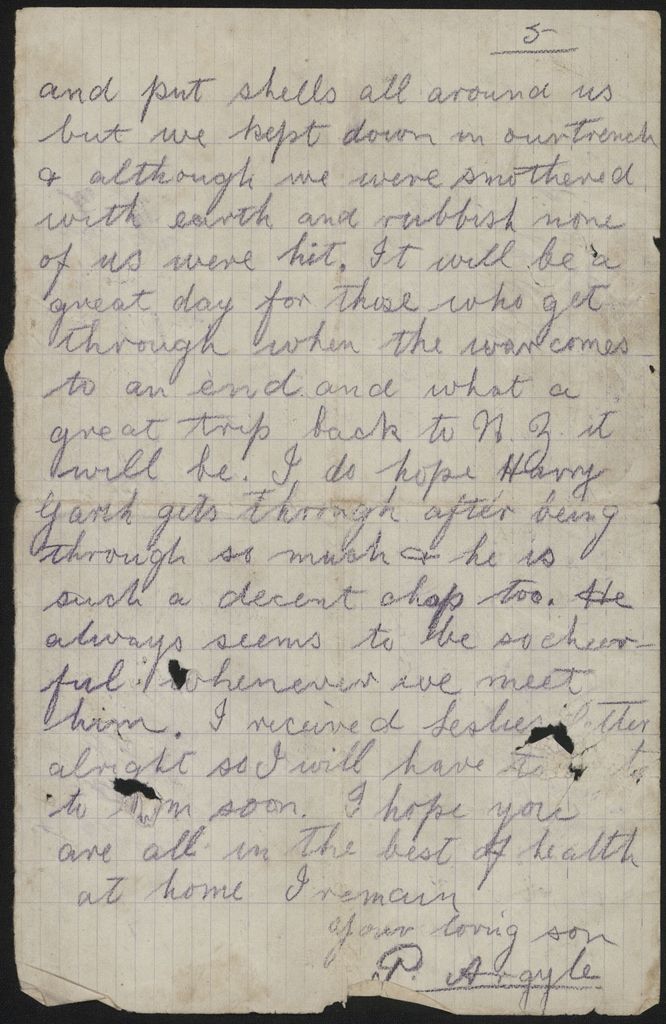 5
and put shells all around us
but we kept down in our trench
& although we were smothered
with earth and rubbish none
of us were hit. It will be a
great day for those who get
through when the war comes
to an end and what a
great trip back to N. Z. it
will be. I do hope Harry
Garth gets through after being
through so much & he is
such a decent chap too. He
always seems to be so cheer-
ful whenever we meet
him. I received Leslies letter
alright so I will have to
to him soon. I hope you
are all in the best of health
at home I remain
Your loving son
P. Argyle